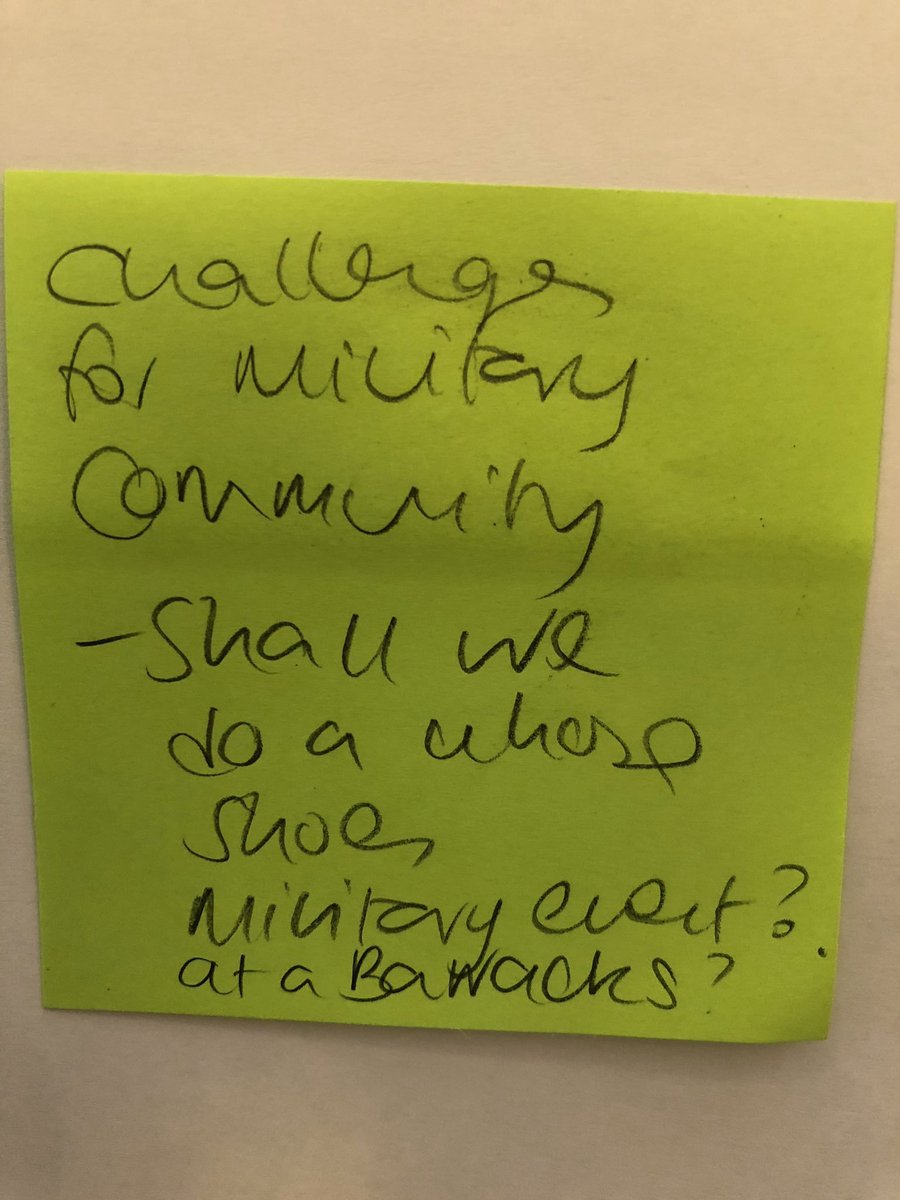 Challenges
for military
Community
- Shall we
do a whose
shoes
military event?
at a Barracks?